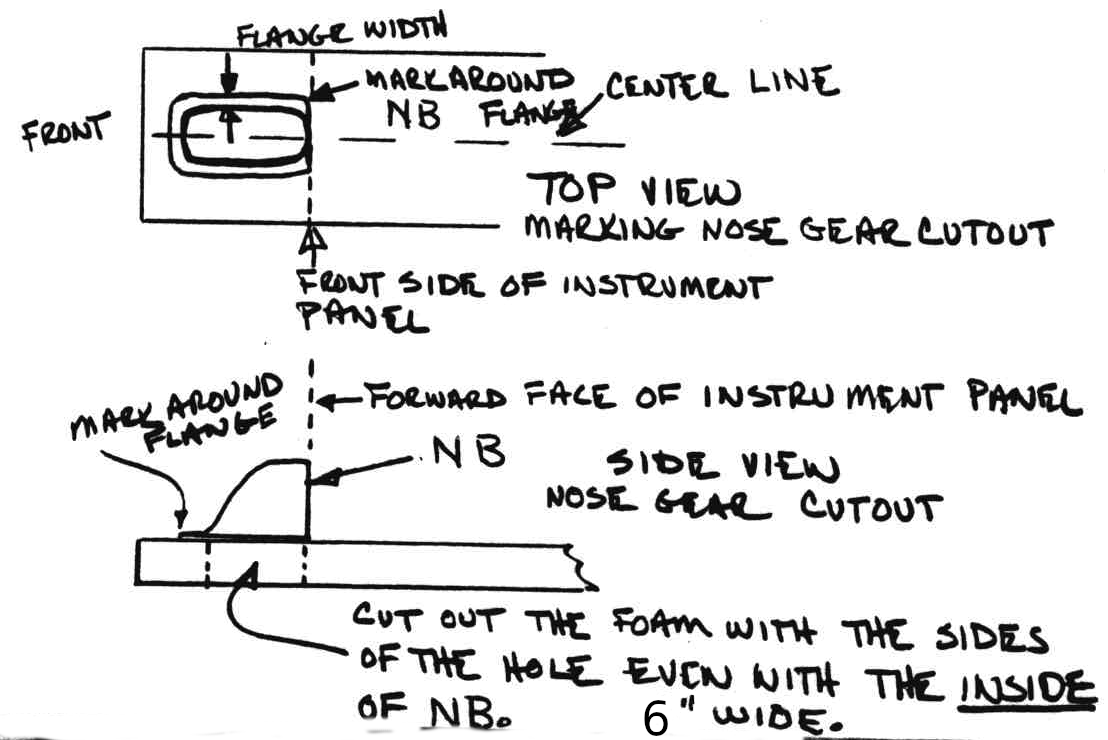 FLANGE WIDTH
MARK AROUND
NB FLANGE
CENTER LINE
FRONT
TOP VIEW
MARKING NOSE GEAR CUTOUT
FRONT SIDE OF INSTRUMENT
PANEL
MARK AROUND
FLANGE
FORWARD FACE OF INSTRUMENT PANEL
NB
SIDE VIEW
NOSE GEAR CUTOUT
CUT OUT THE FOAM WITH THE SIDES
OF THE HOLE EVEN WITH THE INSIDE
OF NB. 6" WIDE.